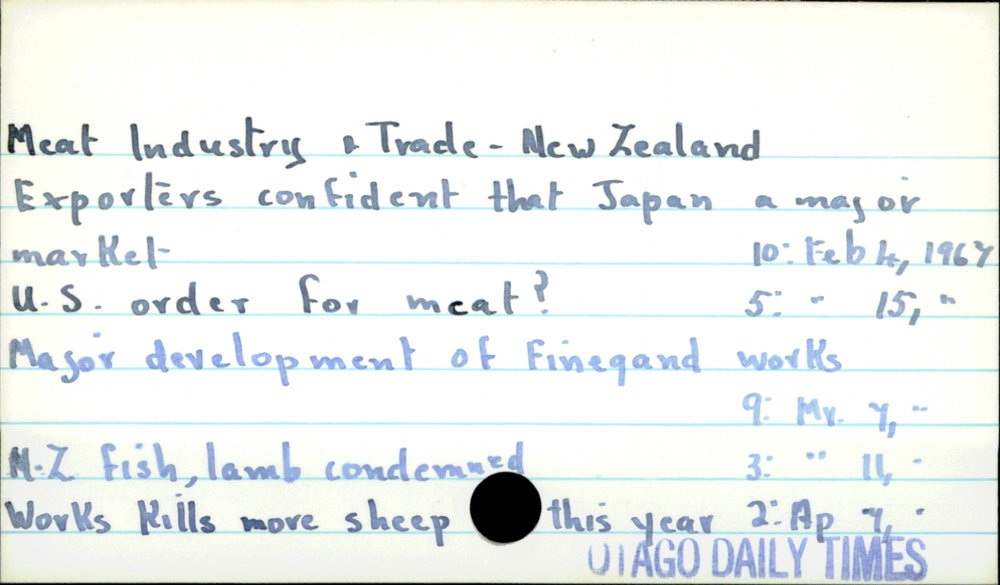 Meat Industry & Trade - New Zealand
Exporters confident that Japan a major
market 10: Feb 4, 1967
U.S. order for meat? 5: " 15, "
Major development of Finegand works
9: Mr. 7, "
N.Z fish, lamb condemned 3: " 11, "
Works kills more sheep this year 2: Ap 7, "
OTAGO DAILY TIMES